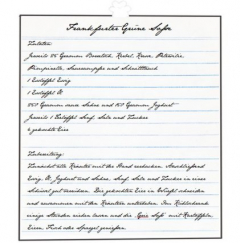 Frankfurter Grüne Soße
Zutaten:
Jeweils 25 Gramm Borretsch, Kerbel, Kresse, Petersilie,
Pimpinelle, Sauerampfer und Schnittlauch
1 Esslöffel Essig
1 Esslöffel Öl
250 Gramm saure Sahne und 150 Gramm Joghurt
Jeweils 1 Esslöffel Senf, Salz und Zucker
6 gekochte Eier
Zubereitung:
Zunächst alle Kräuter mit der Hand zerhacken. Anschließend
Essig, Öl, Joghurt und Sahne, Senf, Salz und Zucker in einer
Schüssel gut verrühren. Die gekochten Eier in Würfel schneiden
und zusammen mit den Kräutern unterheben. Im Kühlschrank
einige Stunden ziehen lassen und die Grüne Soße mit Kartoffeln,
Eiern, Fisch oder Spargel genießen.